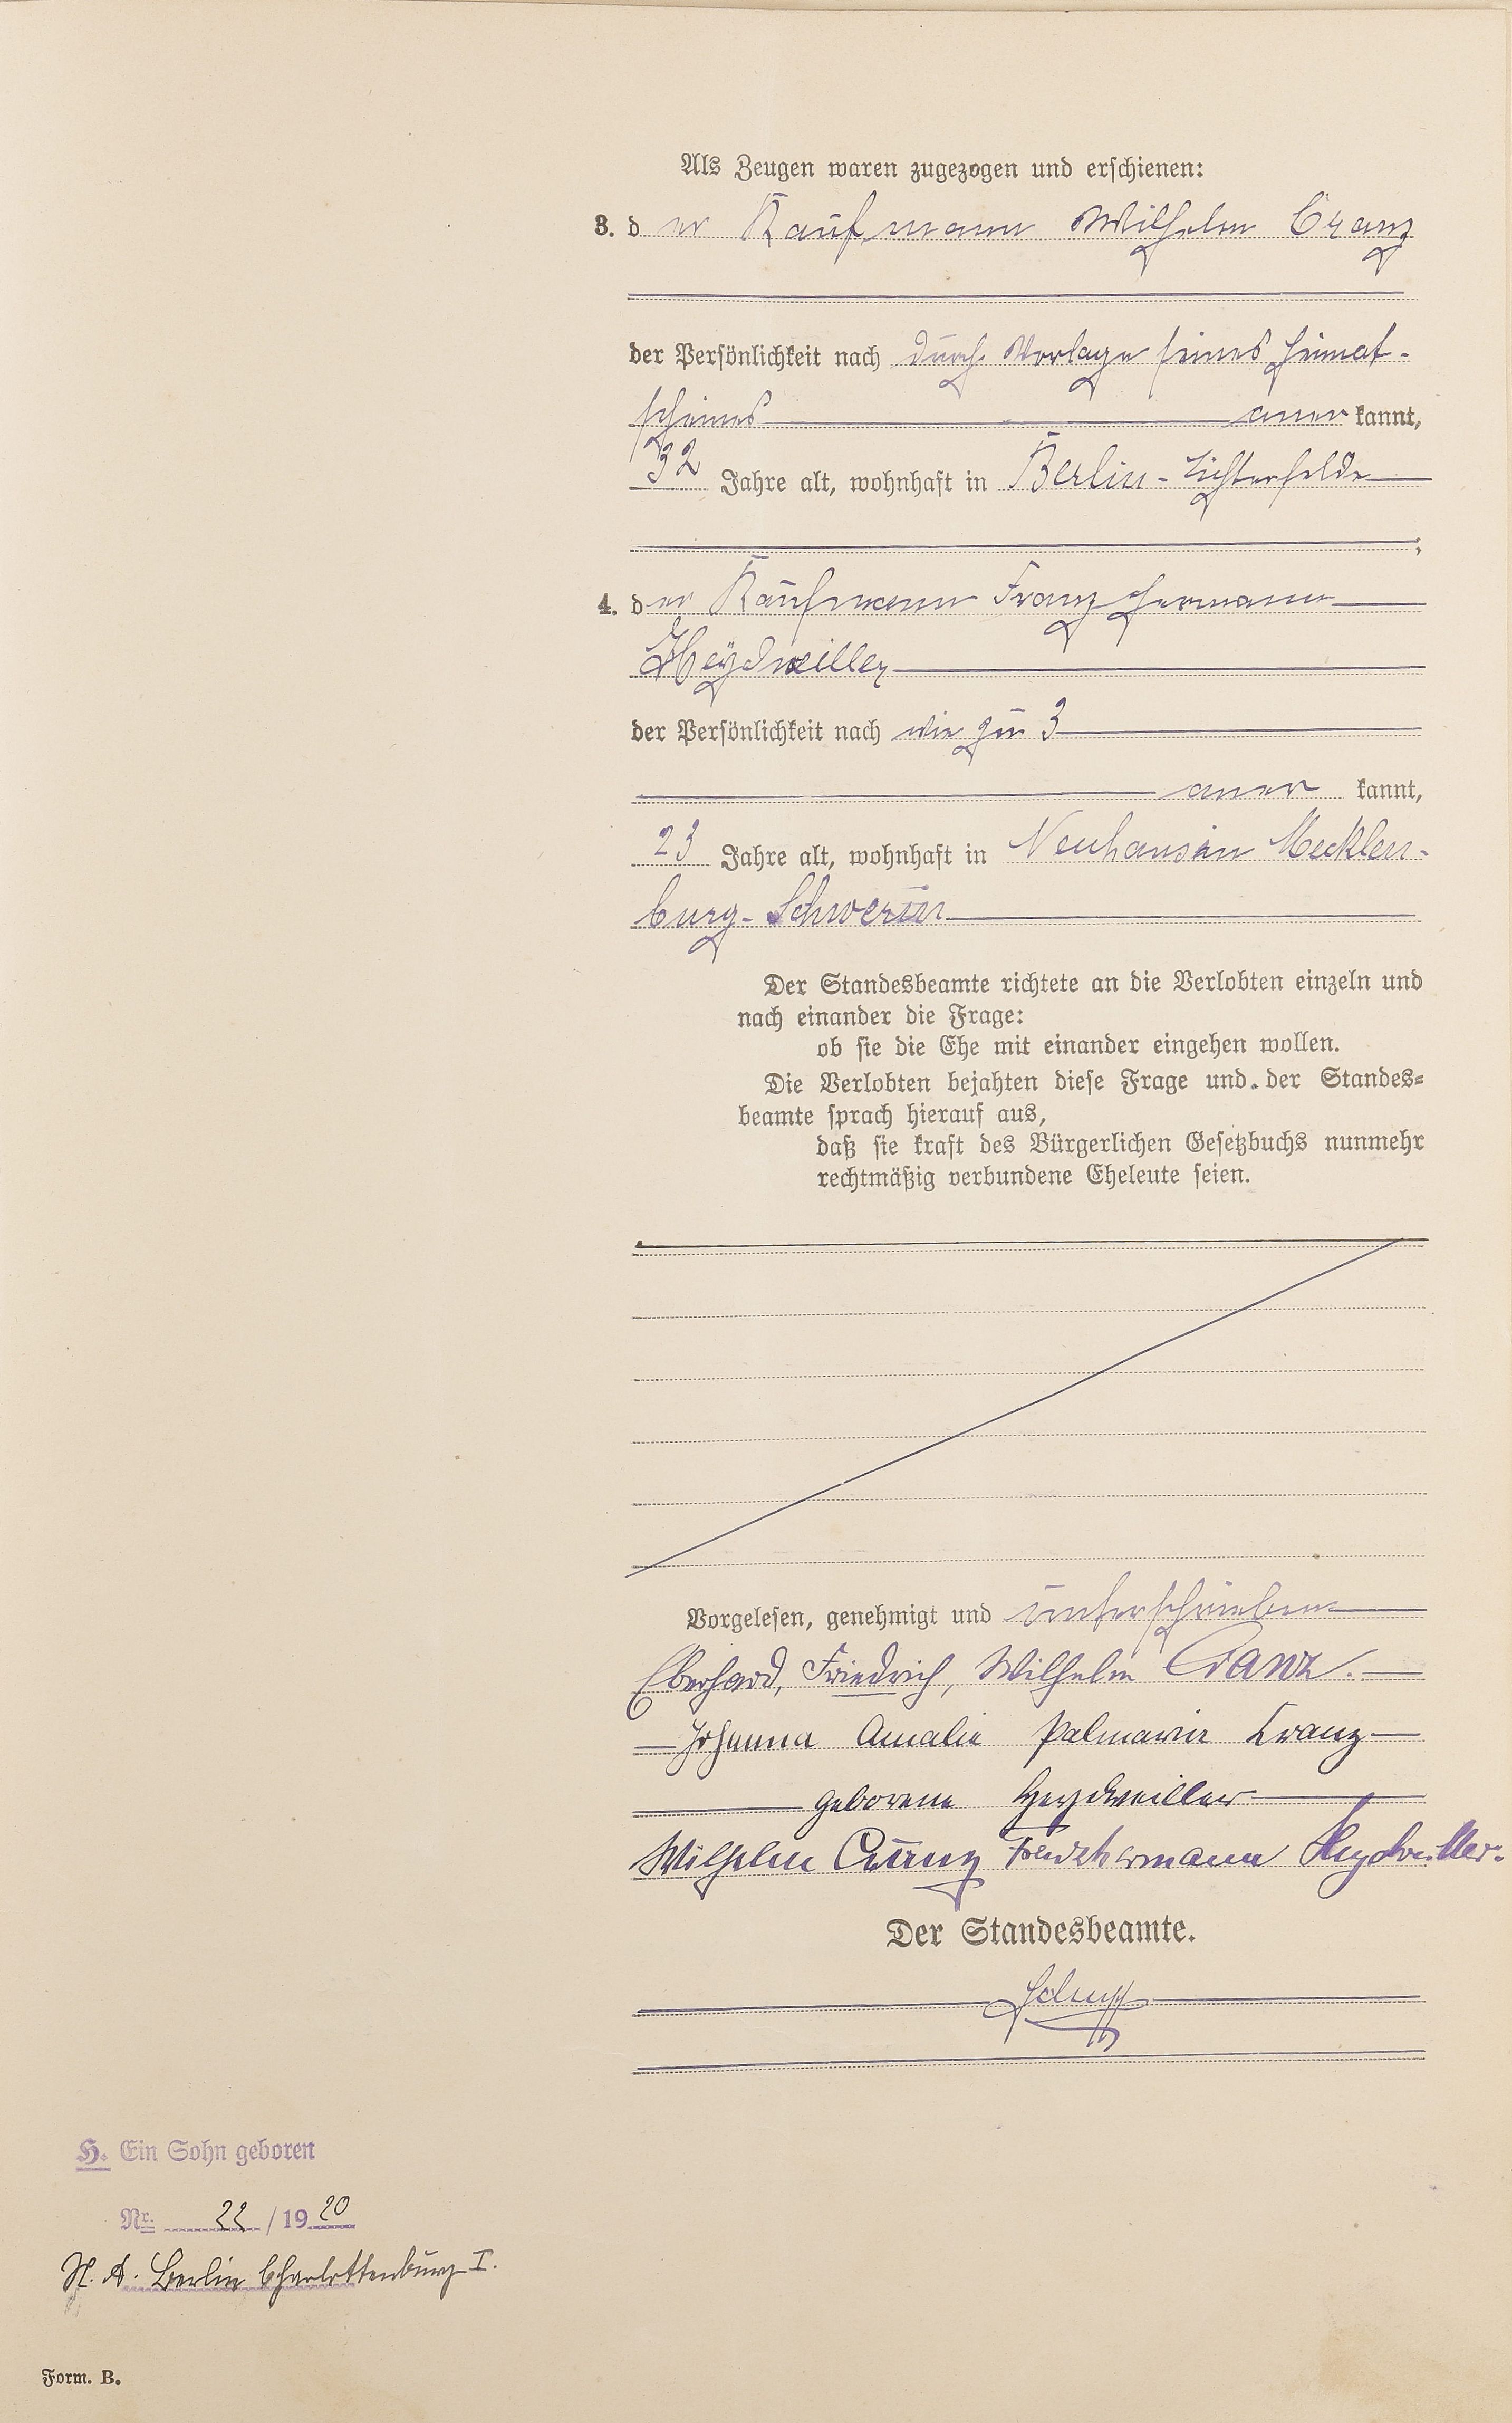 Als Zeugen waren zugezogen und erschienen:
3. der Kaufmann Wilhelm Cranz
der Persönlichkeit nach durch Vorlage seines Heimat-
scheines anerkannt,
32 Jahre alt, wohnhaft in Berlin-Lichterfelde
;
4. der Kaufmann Franz Hermann
Heydweiller
der Persönlichkeit nach wie zu 3
anerkannt,
23 Jahre alt, wohnhaft in Neuhaus in Mecklen-
burg-Schwerin
Der Standesbeamte richtete an die Verlobten einzeln und
nach einander die Frage:
ob sie die Ehe mit einander eingehen wollen.
Die Verlobten bejahten diese Frage und der Standes-
beamte sprach hierauf aus,
daß sie kraft des Bürgerlichen Gesetzbuchs nunmehr
rechtmäßig verbundene Eheleute seien.
Vorgelesen, genehmigt und unterschrieben
Eberhard, Friedrich, Wilhelm Cranz.
Johanna Amalie Palmarie Cranz
geborene Heydweiller
Wilhelm Cranz Franz Hermann Heydweiller.
Der Standesbeamte.
H. Ein Sohn geboren
Nr. 22/1920
St. A. Berlin Charlottenburg I.
Form. B.